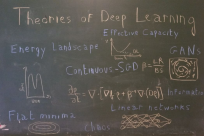 Theories of Deep Learning
Effective Capacity
Energy Landscape
GANs
Continuous-SGD
β = LR/BS
Information
Linear networks
Flat minima
Chaos